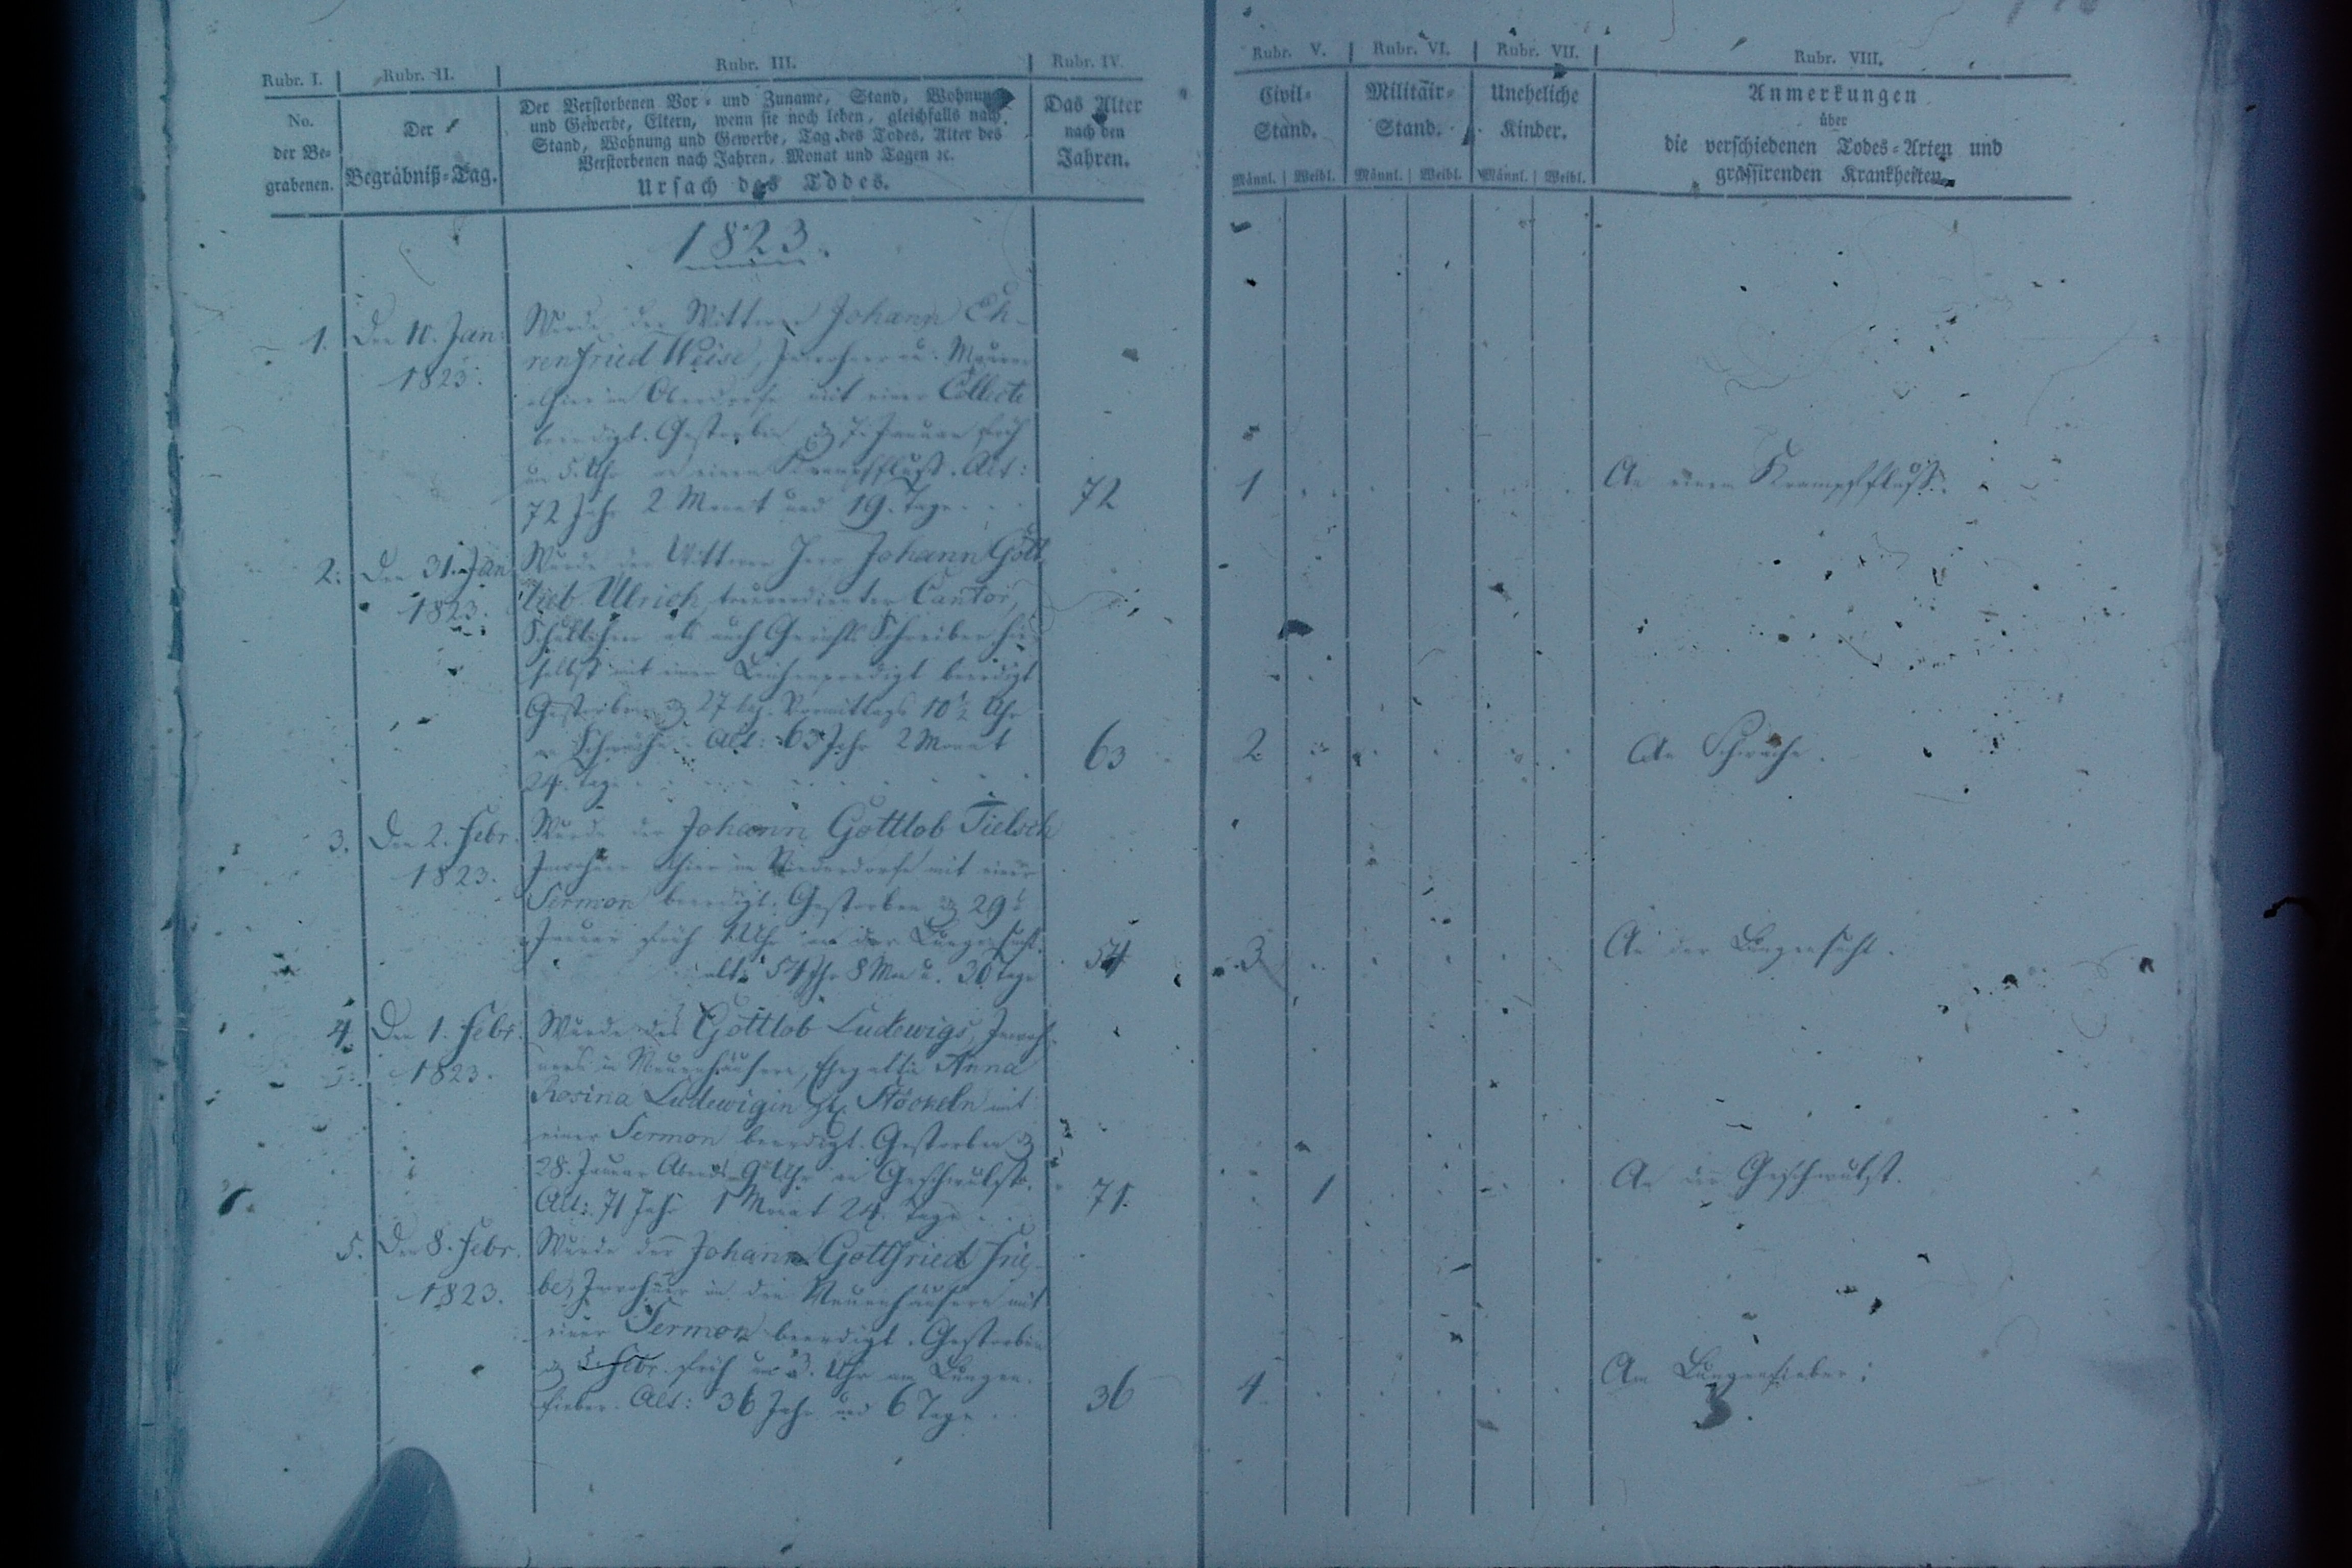 Rubr. I. Rubr. II. Rubr. III. Rubr. IV. Rubr. V. Rubr. VI. Rubr. VII. Rubr. VIII.
No.
der Be-
grabenen.
Der
Begräbniß-Tag.
Der Verstorbenen Vor- und Zuname, Stand, Wohnung
und Gewerbe, Eltern, wenn sie noch leben, gleichfalls nach
Stand, Wohnung und Gewerbe, Tag des Todes, Alter des
Verstorbenen nach Jahren, Monat und Tagen ꝛc.
Ursach des Todes.
Das Alter
nach den
Jahren.
Civil-
Stand.
Männl. Weibl.
Militair-
Stand.
Männl. Weibl.
Uneheliche
Kinder.
Männl. Weibl.
Anmerkungen
über
die verschiedenen Todes-Arten und
grassirenden Krankheiten.
1823.
1. Den 10. Jan:
1823.
Wurde der Wittwer Johann Eh-
renfried Weise, Inwohner u. Maurer
alhier im Oberdorfe mit einer Collecte
beerdigt. Gestorben 7. Januar früh
um 5. Uhr an einem Krampffluß. Alt:
72 Jahr 2 Monat und 19. Tage
72 1 An einem Krampffluß.
2. Den 31. Jan
1823.
Wurde der Wittwer Herr Johann Gott-
lieb Ulrich, treuverdienter Cantor,
Schullehrer als auch Gerichts Schreiber hie-
selbst mit einer Leichenpredigt beerdigt
Gestorben 27 Vormittags 10½ Uhr
an Schwäche. Alt: 63 Jahr 2 Monat
24. Tage
63 2 An Schwäche.
3. Den 2. Febr.
1823.
Wurde der Johann Gottlob Tielsch
Inwohner alhier im Niederdorfe mit einer
Sermon beerdigt. Gestorben 29
Januar früh 1 Uhr an der Lungensucht.
alt: 54 Jhr 8 Mon u. 30 Tage
54 3 An der Lungensucht.
4. Den 1. Febr.
1823.
Wurde des Gottlob Ludewigs, Inwoh-
ners in Neuenhäusern, Ehegattin Anna
Rosina Ludewigin Stöckeln mit
einer Sermon beerdigt. Gestorben
28. Januar Abends 9 Uhr an Geschwulst.
Alt: 71 Jahr 1 Monat 24. Tage
71. 1 An der Geschwulst.
5. Den 8. Febr.
1823.
Wurde der Johann Gottfried Frie-
be, Inwohner in den Neuenhäusern mit
einer Sermon beerdigt. Gestorben
5. Febr. früh um 3. Uhr am Lungen-
fieber. Alt: 36 Jahr und 6 Tage
36 4. Am Lungenfieber.